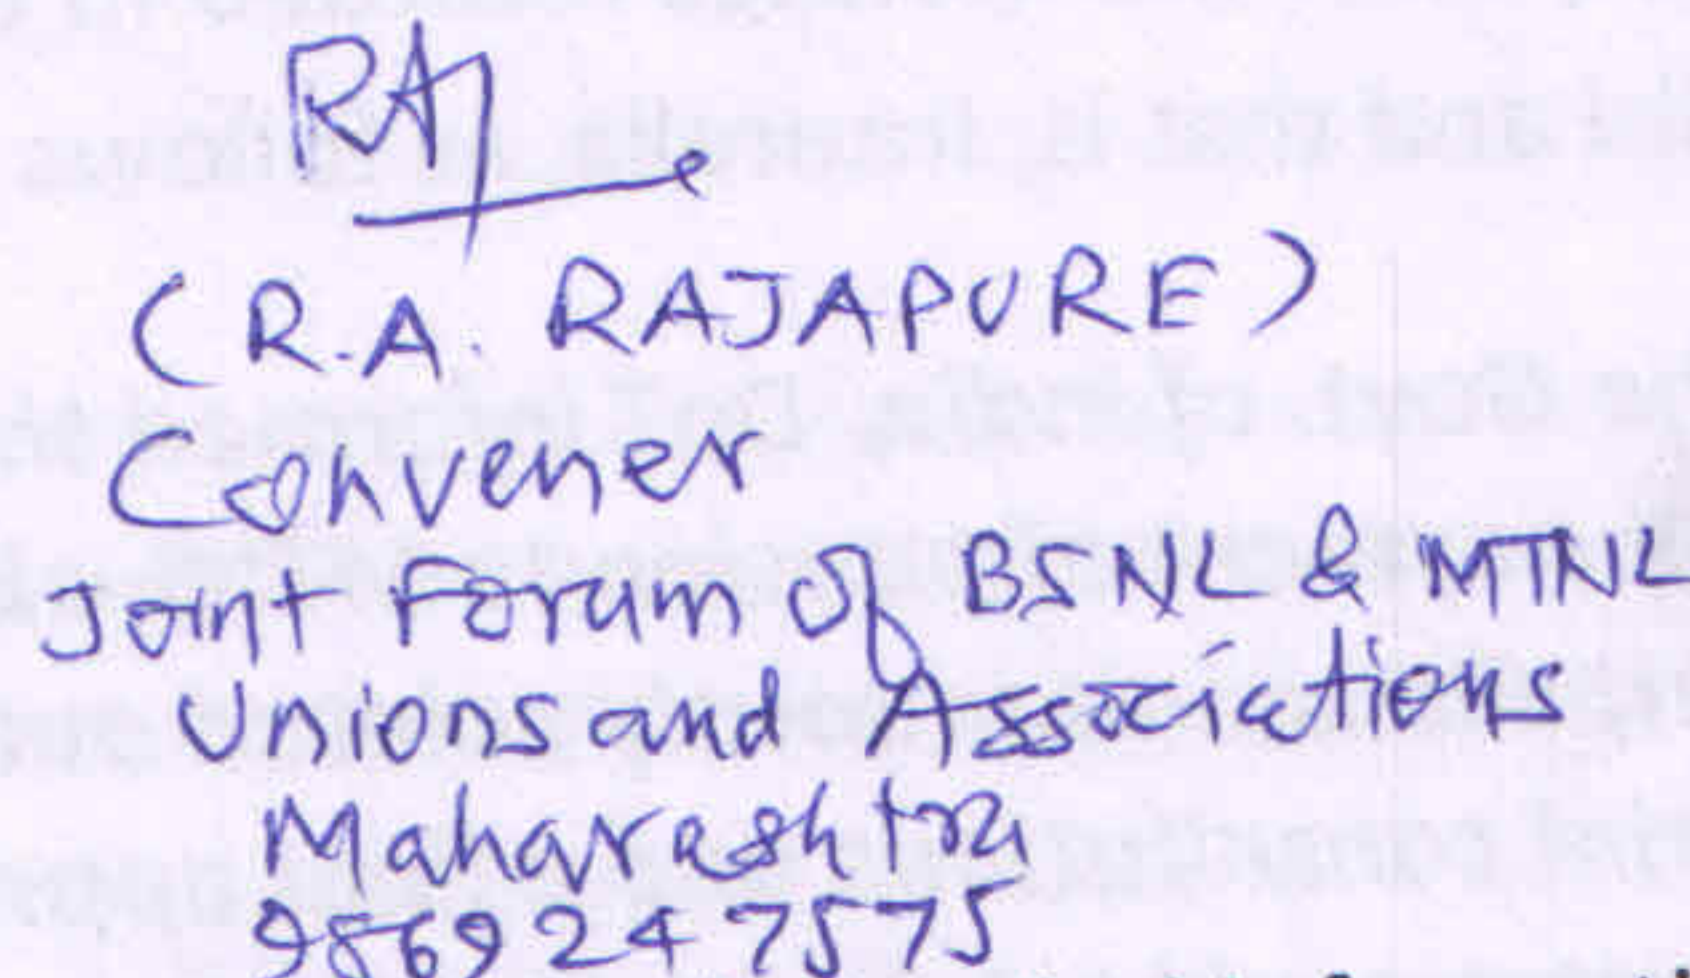 RAJ
(R.A. RAJAPURE)
Convener
Joint Forum of BSNL & MTNL
Unions and Associations
Maharashtra
9869247575